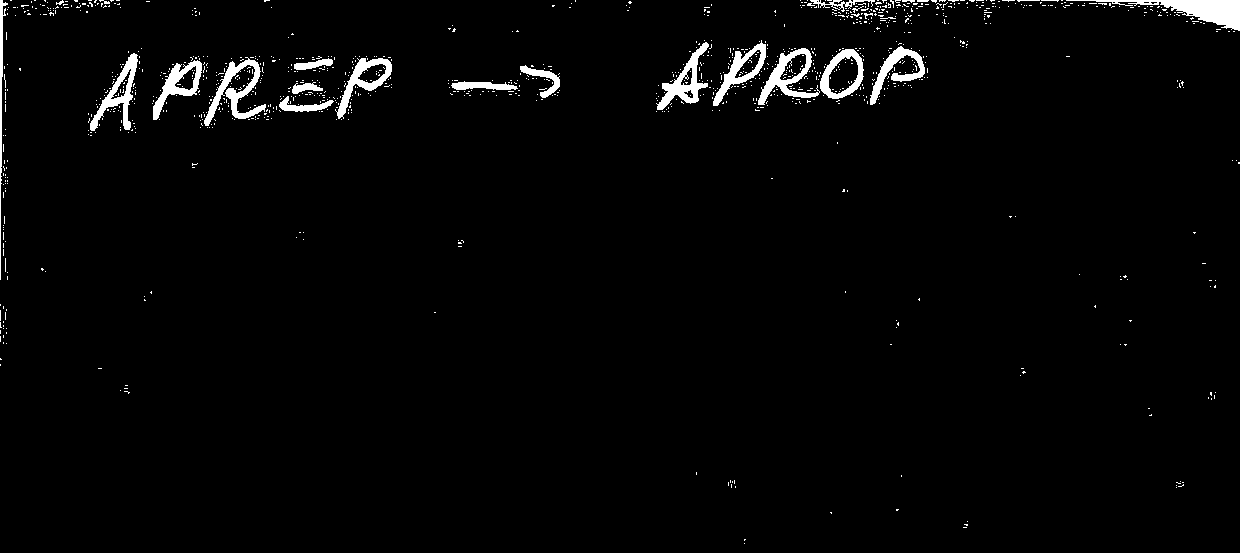 APREP → APROP